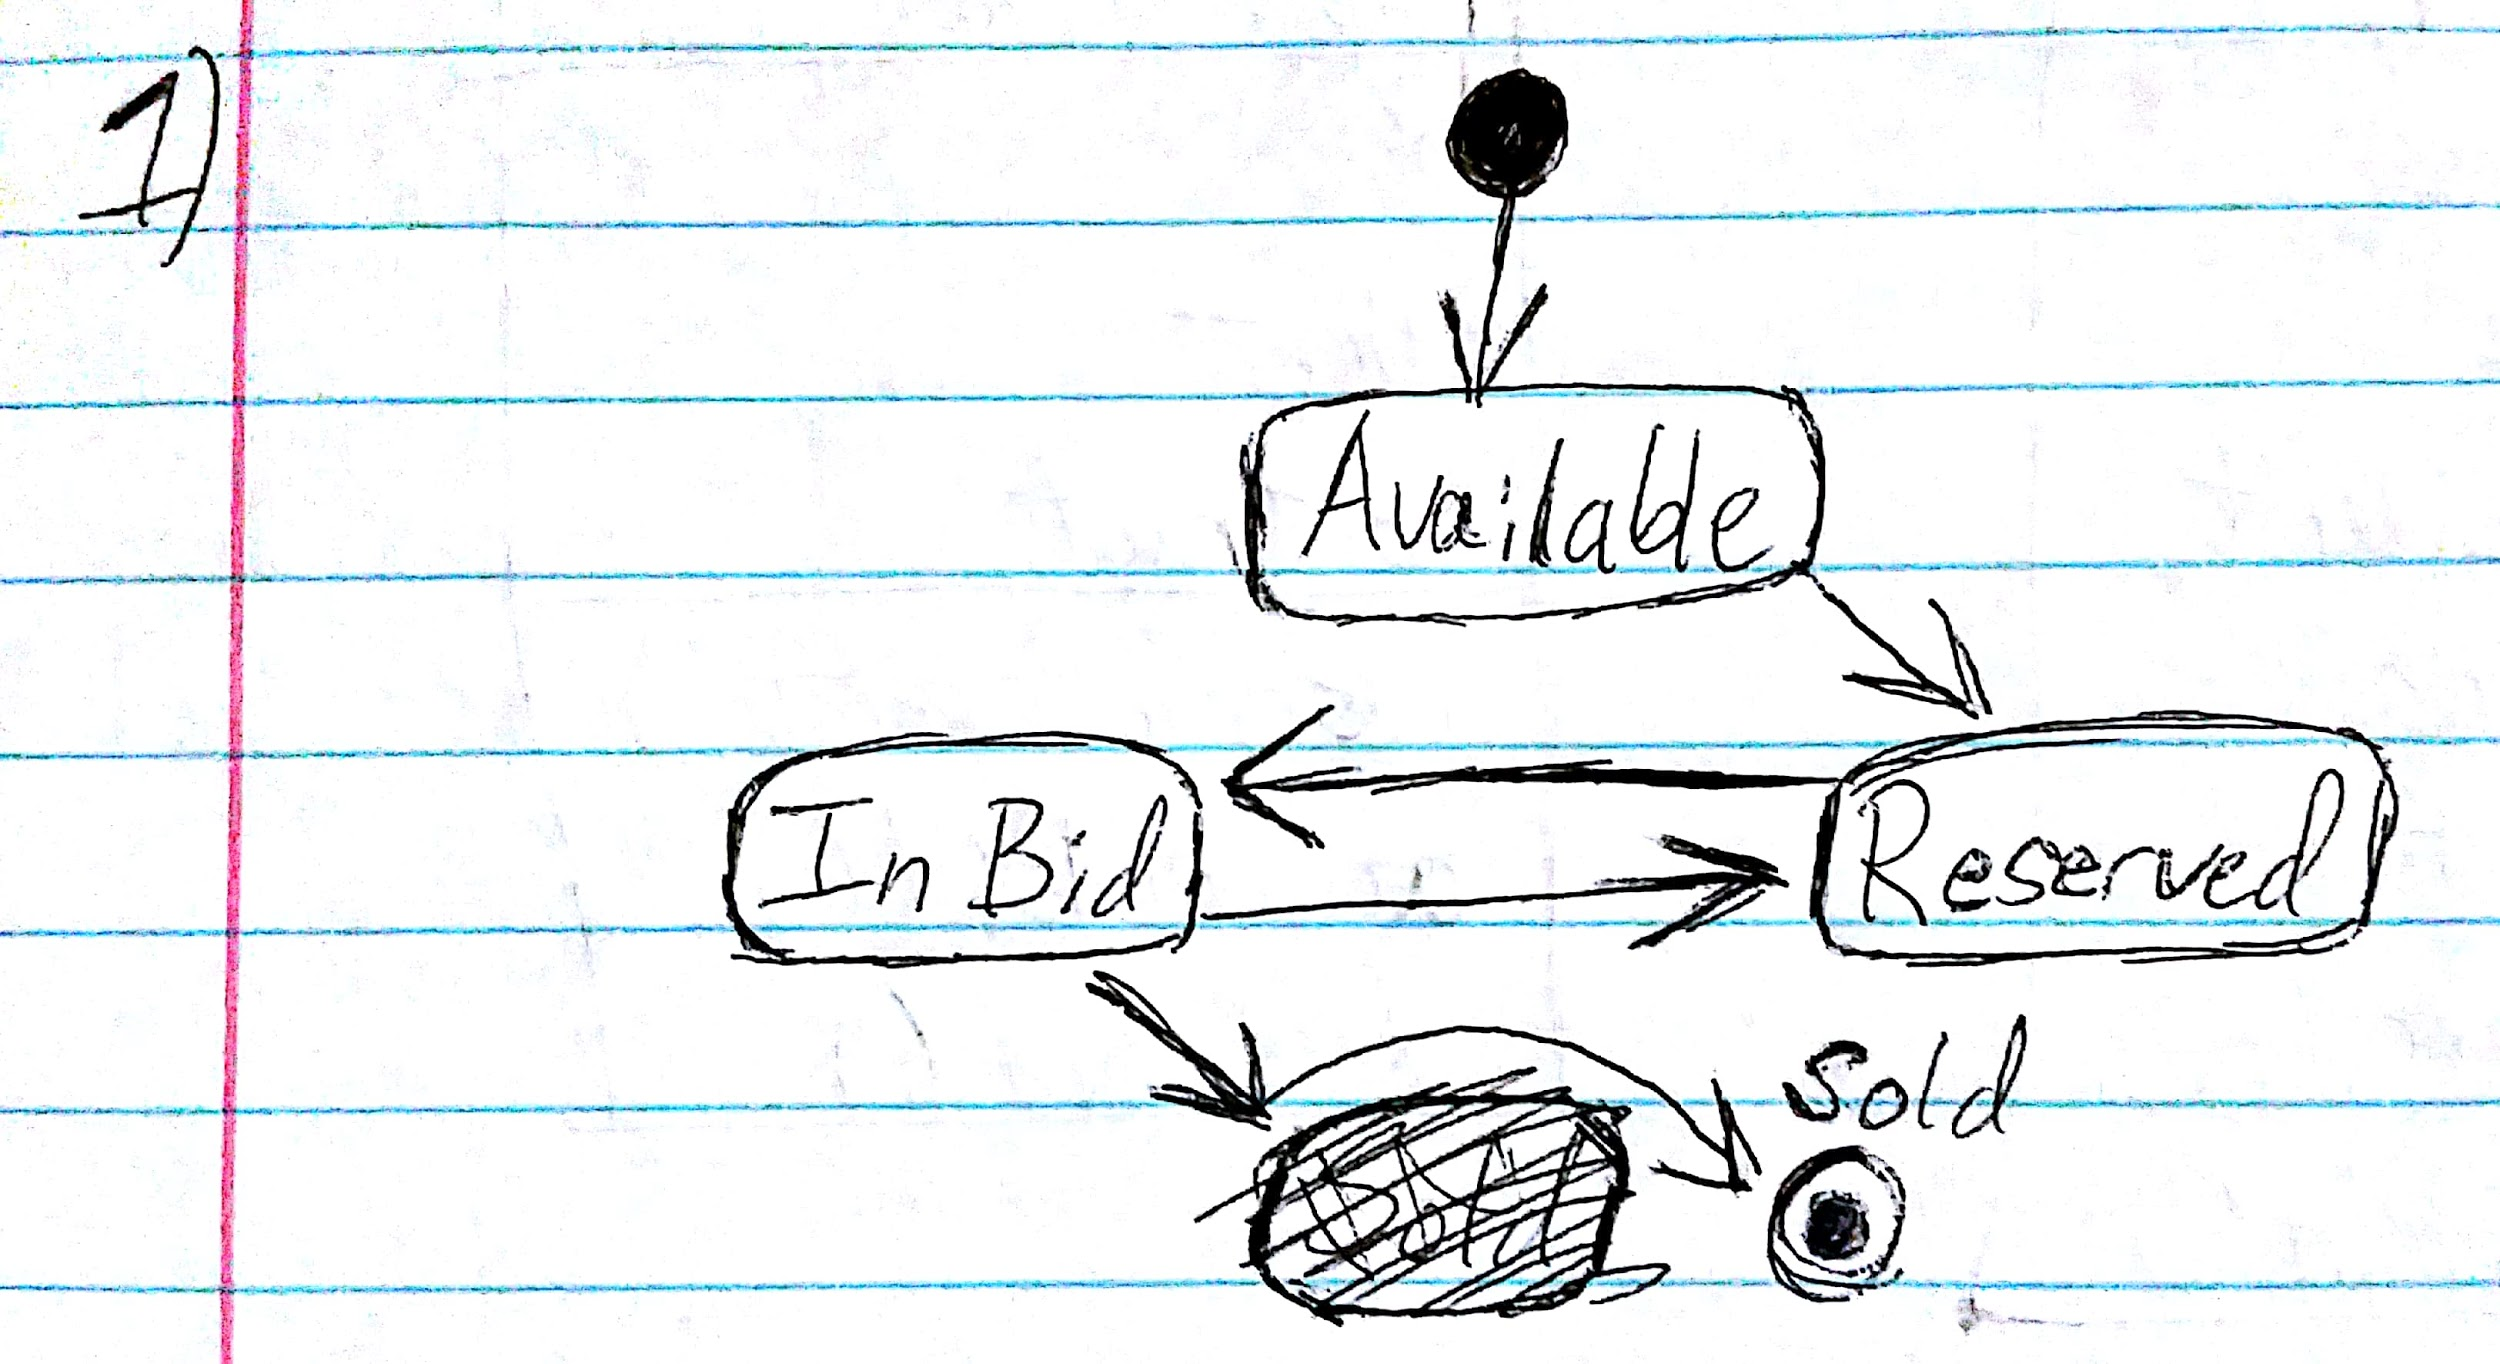 1)
Available
In Bid
Reserved
Sold